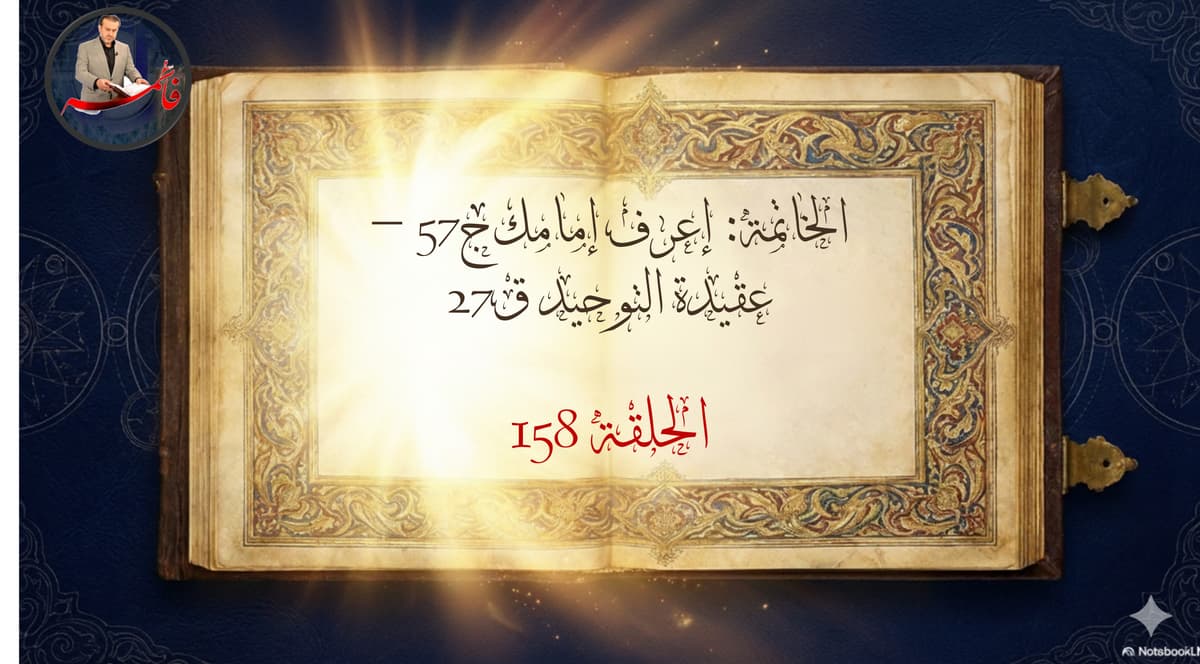 فاطمة
الخاتمة: إعرف إمامك ج57 –
عقيدة التوحيد ق27
الحلقة 158
NotsbookL